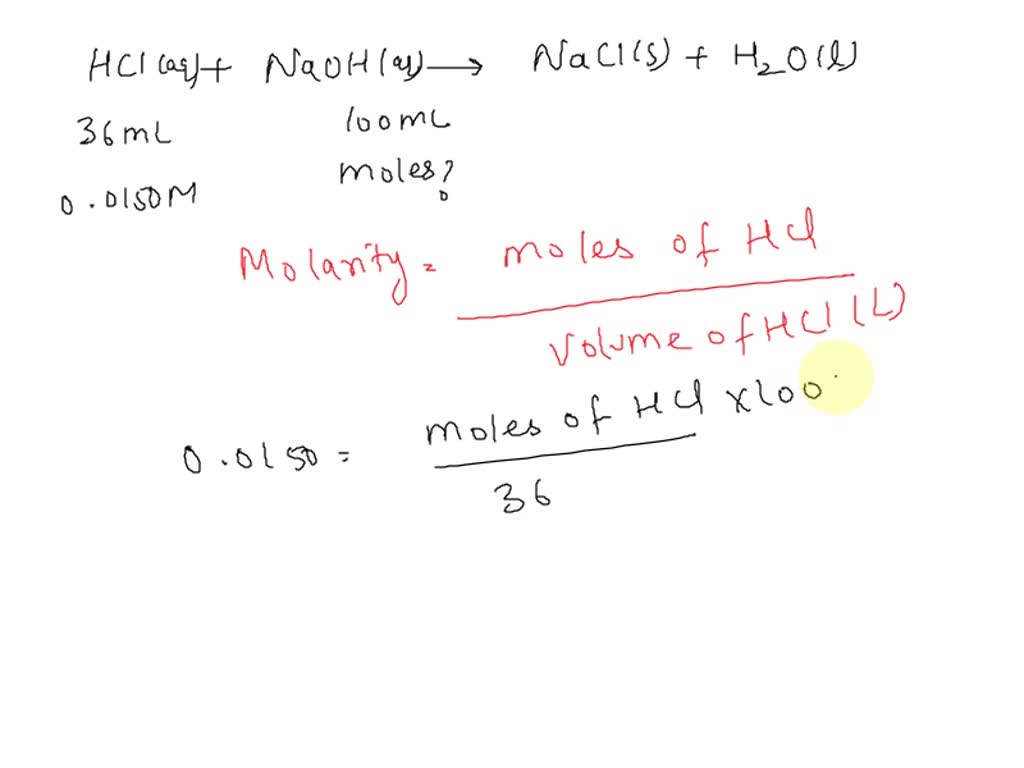 HCl(aq) + NaOH(aq) → NaCl(s) + H₂O(l)
36mL 100mL
0.0150M moles?
Molarity = moles of HCl / Volume of HCl (L)
0.0150 = moles of HCl × 100 / 36